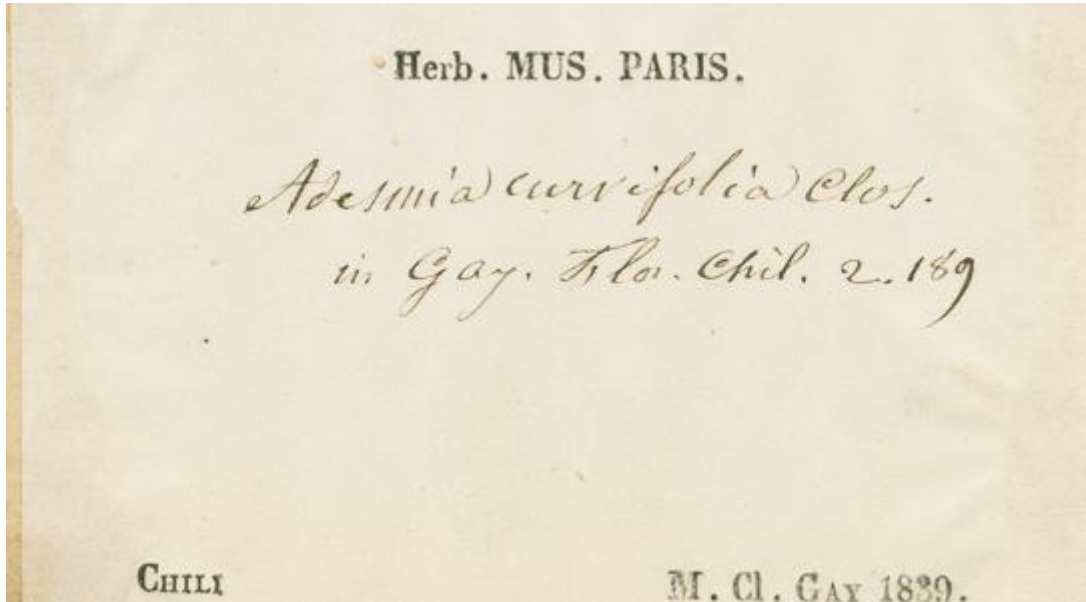 Herb. MUS. PARIS.
Adesmia curvifolia Clos.
in Gay. Flor. Chil. 2. 189
CHILI
M. Cl. GAY 1839.